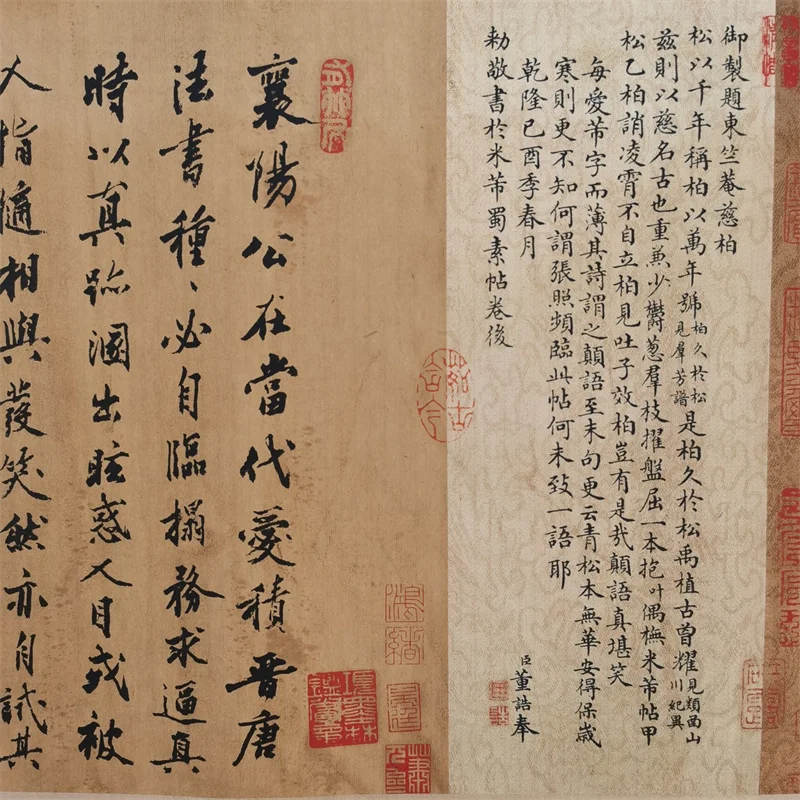 御製題東竺菴慈柏
松以千年稱柏以萬年號柏久於松見羣芳譜是柏久於松禹植古曾耀見類函山川妃異
茲則以慈名古也重兼少鬱蔥羣枝擢盤屈一本抱叶偶橅米芾帖甲
松乙柏誚凌霄不自立柏見吐子效柏豈有是㢤顛語真堪笑
每愛芾字而薄其詩謂之顛語至末句更云青松本無華安得保歲
寒則更不知何謂張照頻臨此帖何未致一語耶
乾隆己酉季春月 臣董誥奉
勅敬書於米芾蜀素帖卷後
茹古含今
項墨林鑑賞章
襄陽公在當代愛積晉唐
法書種〻必自臨搨務求逼真
時以真跡溷出眩惑人目或被
人指擿相與發笑然亦自試其